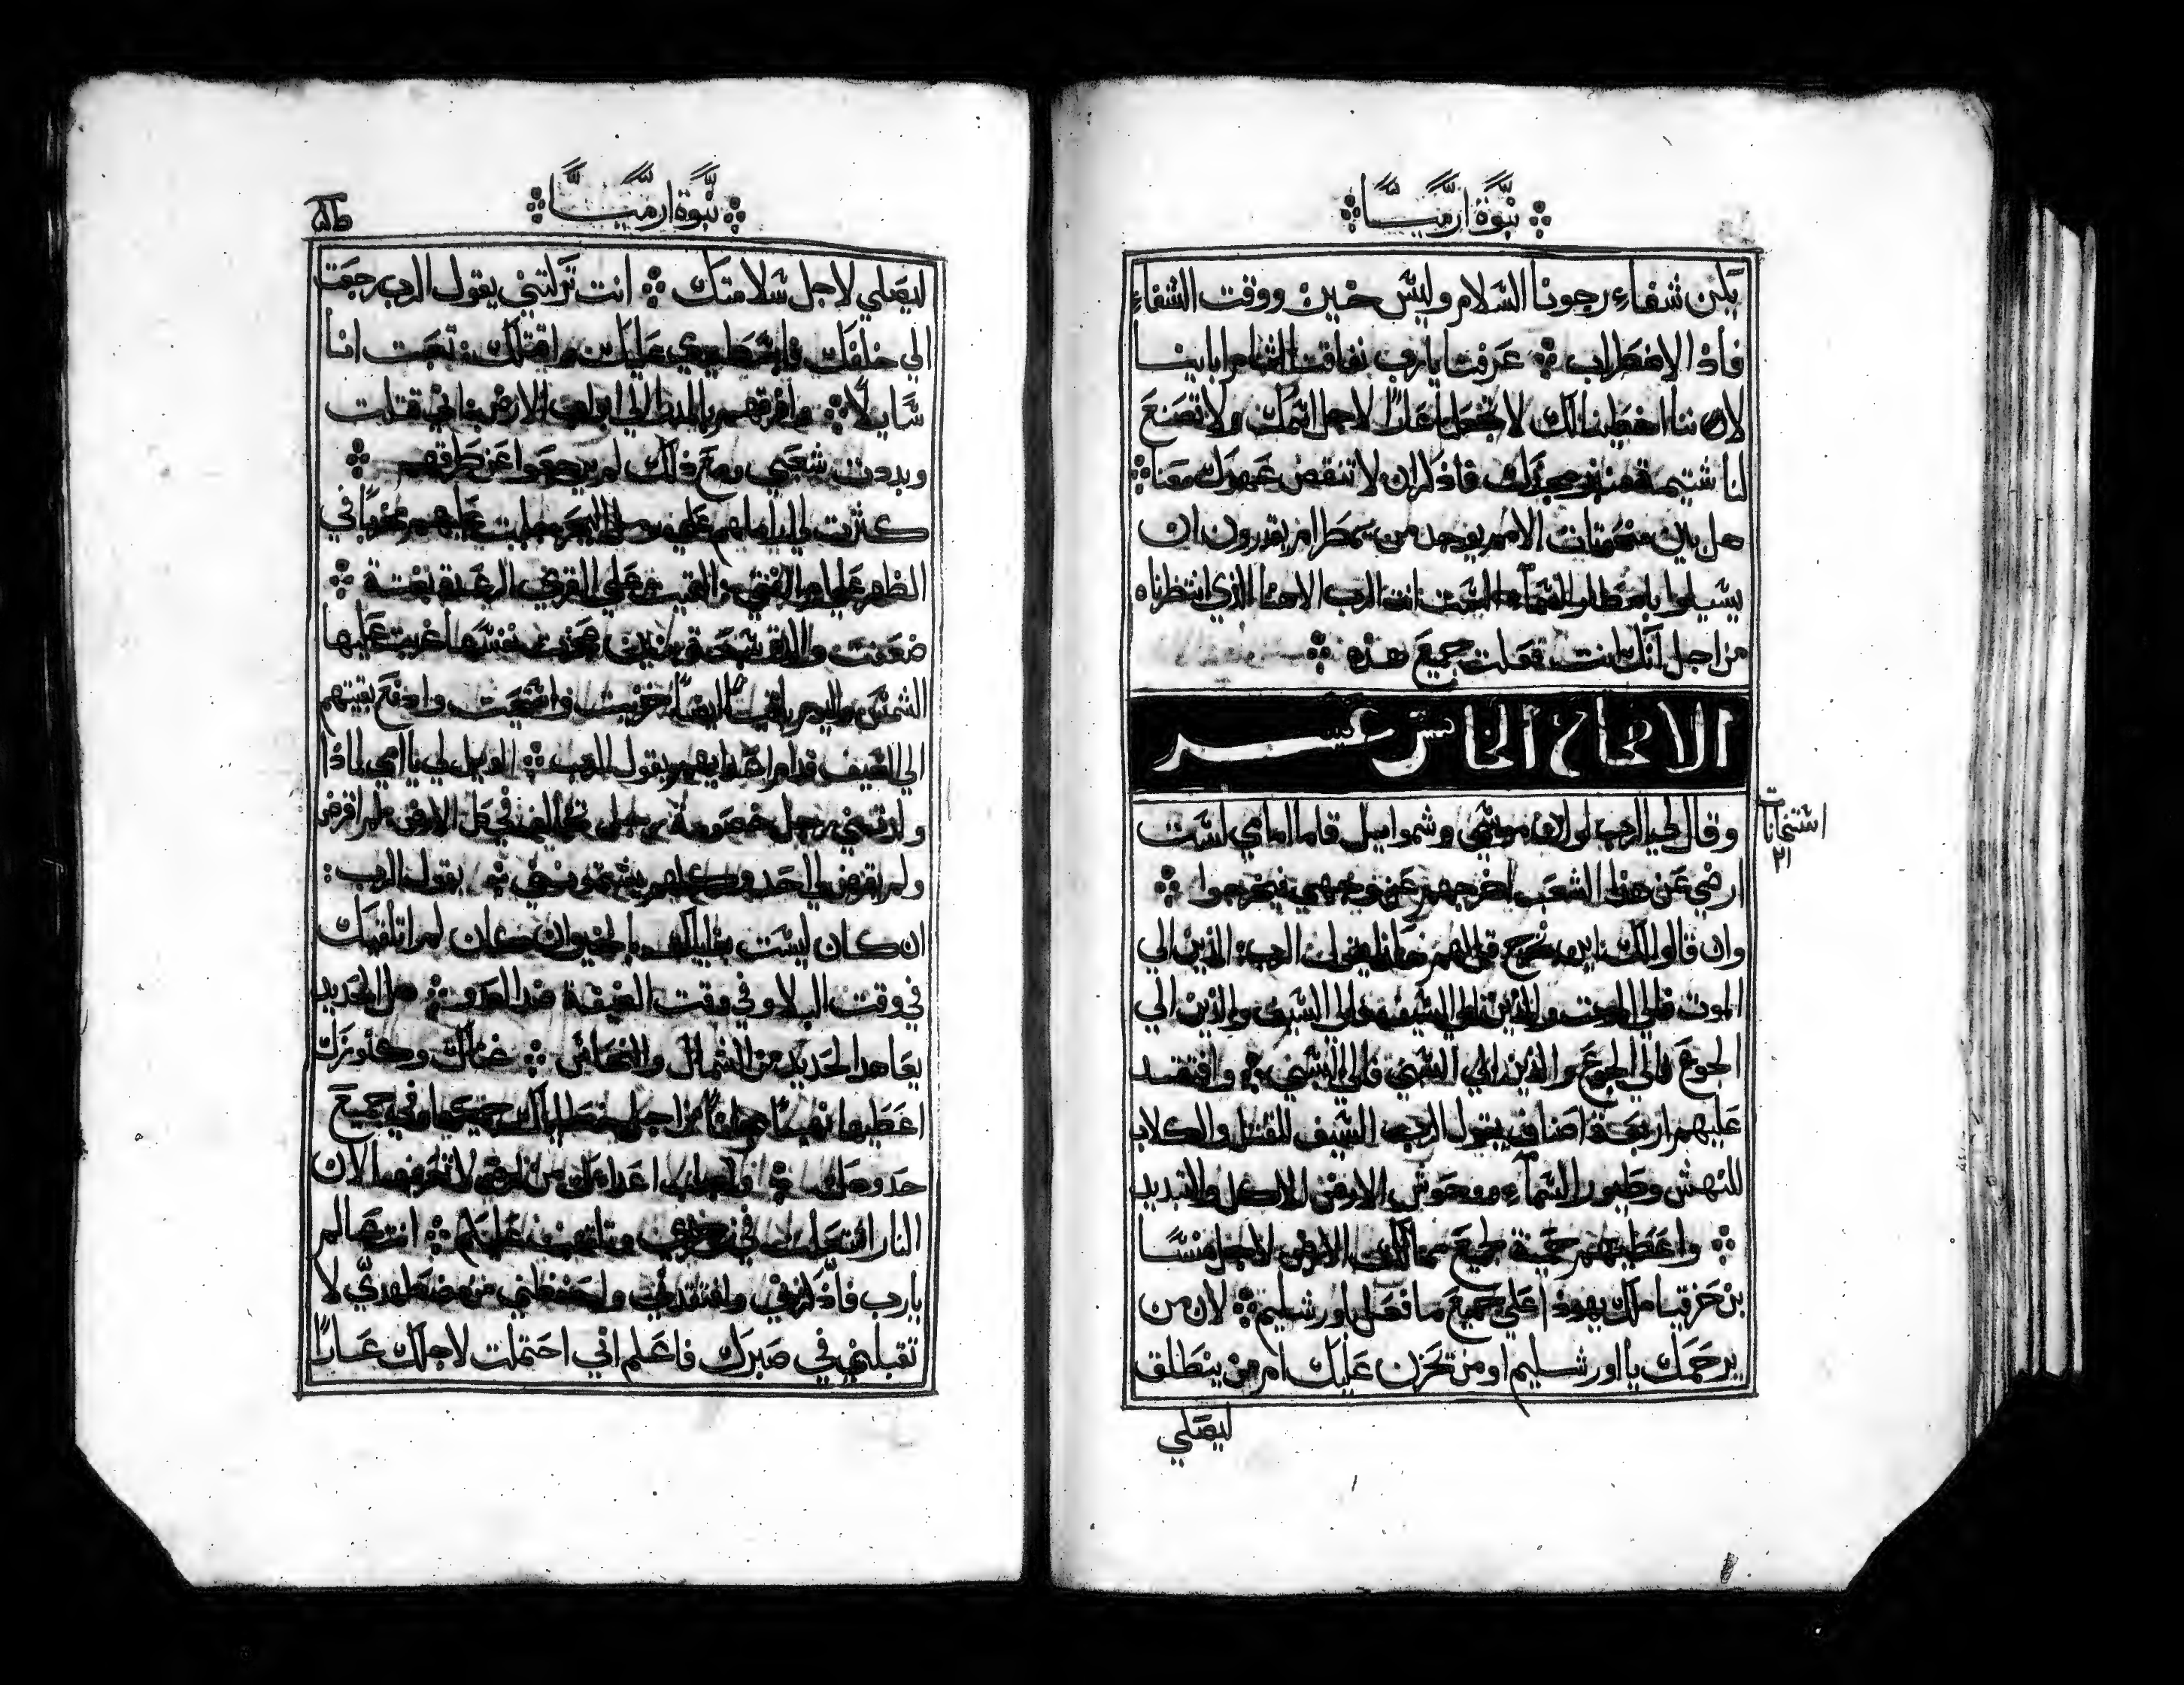 نبوة ارميا
يكن شفاء رجونا السلام وليس خير ووقت الشفاء
فاذا الاضطراب عرفنا يا رب نفاقنا اثام ابائنا
لان ننا اخطينا لك لا تجعلنا عارًا لاجل اسمك ولا تصنع
لنا شتيمة مجدك فاذكر ان لا تنقض عهدك معنا
هل بين منحوتات الامم يوجد من يمطر ام يقدرون ان
يسيلوا بامطار السماء الست انت الرب الاهنا الذي انتظرناه
من اجل انك انت فعلت جميع هذه
الاصحاح الخامس عشر
وقال لي الرب لو قام موسى وشموايل قاما امامي لست
استنخانات
٢١
ارضي عن هذا الشعب اخرجهم عن وجهي فيخرجوا
وان قالوا لك اين نخرج قل لهم هكذا يقول الرب الذين الي
الموت فالي الموت والذين الي السيف فالي السيف والذين الي
الجوع فالي الجوع والذين الي السبي فالي السبي وافتقد
عليهم اربعة اصناف يقول الرب السيف للقتل والكلاب
للنهش وطيور السماء ووحوش الارض للاكل والتبديد
واعطيهم حمية لجميع ممالك الارض لاجل منسا
بن حزقيا ملك يهوذا علي جميع ما فعل باورشليم لان من
يرحمك يا اورشليم او من تحزن عليك ام من ينطلق
ليصلي
نبوة ارميا
ليصلي لاجل سلامتك انت تركتني يقول الرب رجعت
الي خلفك فابسط يدي عليك واقتلك تعبت انا
سايلا وافرقهم بالمذراي ابواب الارض قتلت
وبددت شعبي ومع ذلك لم يرجعوا عن طرقهم
كثرت لي اراملهم علي رمل البحر جلبت عليهم في
الظهر علي القيت علي القري الرعبة بغتة
ضعفت والدة سبعة بنين حزنت نفسها غربت عليها
الشمس خزيت وافتضحت وادفع بقيتهم
الي السيف قدام اعدايهم يقول الرب الويل لي يا امي لماذا
ولدتيني رجل خصومة رجل في كل الارض لم اقرض
ولم يقرضني احد وكلهم يقول الرب
ان كان ليست بقاياك بالخير وان كان لم اتلقيك
في وقت البلا وفي وقت الضيقة ضد العدو هل الحديد
يعاهد الحديد من الشمال والنحاس غناك وكنوزك
اعطيها نهيبًا مجانًا من اجل خطاياك جميعها وفي جميع
حدودك واجلب اعداك من ارض لا تعرفها لان
النار اشتعلت في انت عالم
يا رب فاذكرني وافتقدني واحفظني من مضطهديّ لا
تقبلني في صبرك فاعلم اني احتملت لاجلك عارًا